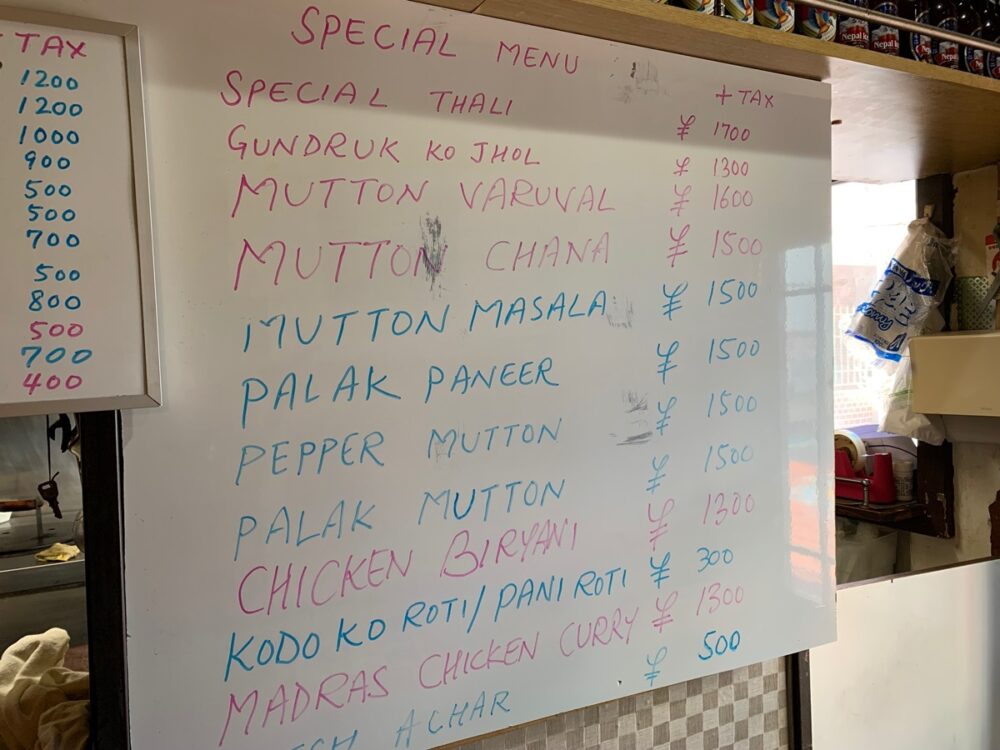 TAX
1200
1200
1000
900
500
500
700
500
800
500
700
400
SPECIAL MENU
+ TAX
SPECIAL THALI ¥ 1700
GUNDRUK KO JHOL ¥ 1300
MUTTON VARUVAL ¥ 1600
MUTTON CHANA ¥ 1500
MUTTON MASALA ¥ 1500
PALAK PANEER ¥ 1500
PEPPER MUTTON ¥ 1500
PALAK MUTTON ¥ 1500
CHICKEN BIRYANI ¥ 1300
KODO KO ROTI/PANI ROTI ¥ 300
MADRAS CHICKEN CURRY ¥ 1300
ACHAR ¥ 500
Nepal
Nepal